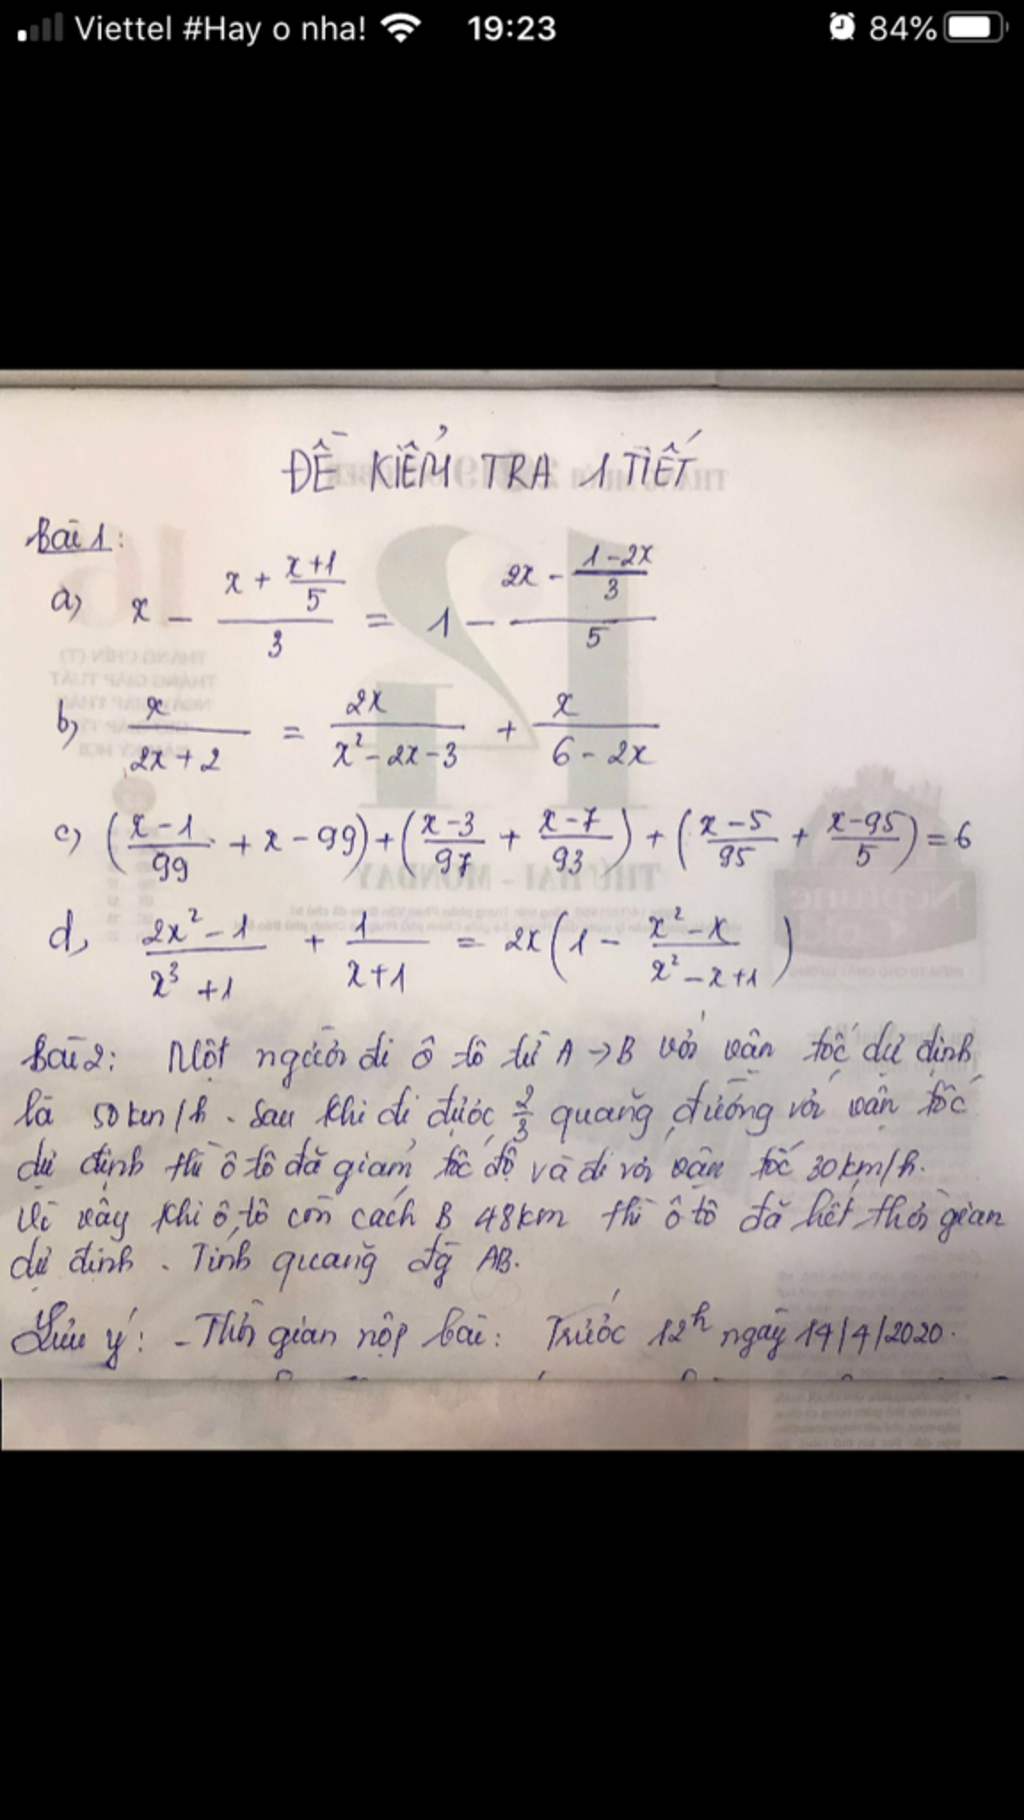 Viettel #Hay o nha! 19:23 84%
ĐỀ KIỂM TRA 1 TIẾT
Bài 1:
a) x - (x + (x+1)/5)/3 = 1 - (2x - (1-2x)/3)/5
b) x/(2x+2) = 2x/(x²-2x-3) + x/(6-2x)
c) ((x-1)/99 + x-99) + ((x-3)/97 + (x-7)/93) + ((x-5)/95 + (x-95)/5) = 6
d, (2x²-1)/(x³+1) + 1/(x+1) = 2x(1 - (x²-x)/(x²-x+1))
Bài 2: Một người đi ô tô từ A → B với vận tốc dự định
là 50km/h. Sau khi đi được 2/3 quãng đường với vận tốc
dự định thì ô tô đã giảm tốc độ và đi với vận tốc 30km/h.
Vì vậy khi ô tô còn cách B 48km thì ô tô đã hết thời gian
dự định. Tính quãng đg AB.
Lưu ý: - Thời gian nộp bài: Trước 12h ngày 14/4/2020.
THỨ HAI - MONDAY
Neptune